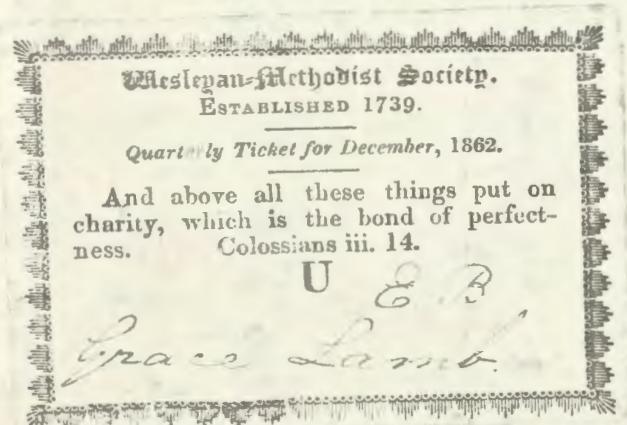 Wesleyan-Methodist Society.
ESTABLISHED 1739.
Quarterly Ticket for December, 1862.
And above all these things put on
charity, which is the bond of perfect-
ness. Colossians iii. 14.
U
E B
Grace Lamb.